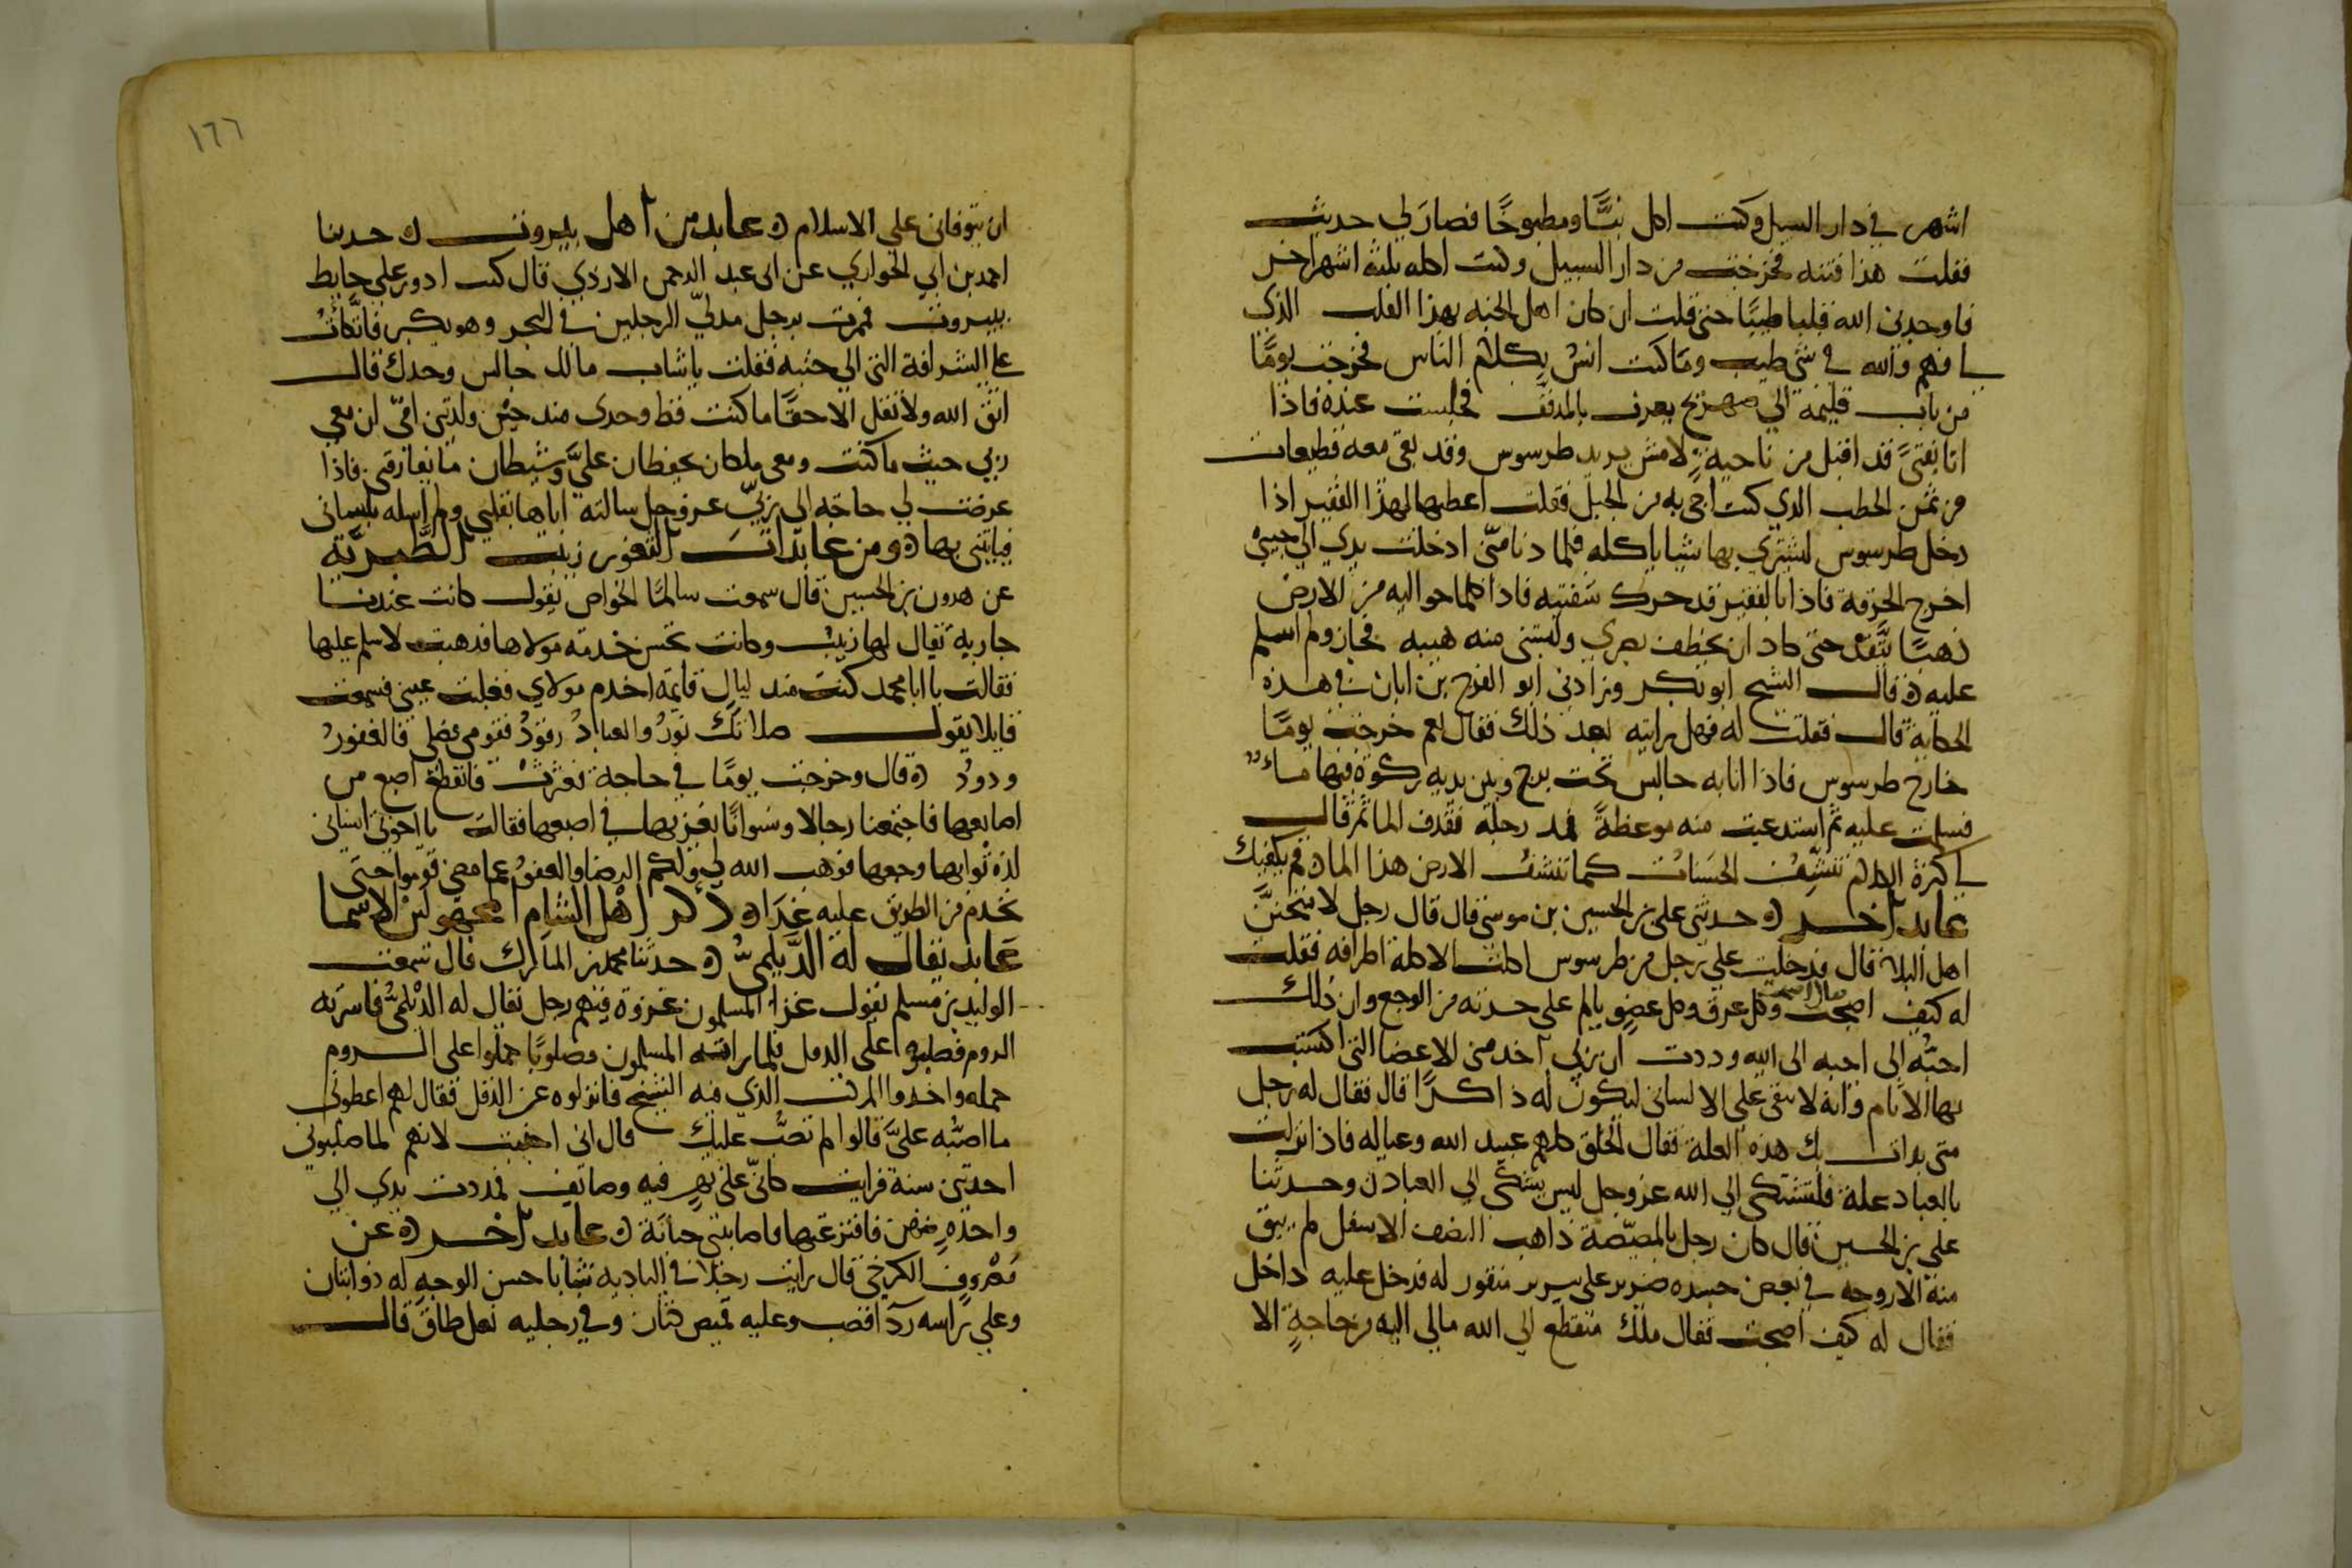 اشهر في دار السبيل وكنت اكل نيًّا ومطبوخًا فصار لي حديث
فقلت هذا فتنه فخرجت من دار السبيل وكنت اكله ثلثة اشهر اخر
فاوجدني الله قلبا طيبًا حتى قلت ان كان اهل الجنه بهذا القلب الذي
لي فهم والله في شي طيب وما كنت انسُ بكلام الناس فخرجت يومًا
من باب قليمة الي صهريج يعرف بالمدنف فجلست عنده فاذا
انا بفتىً قد اقبل من ناحية لامش يريد طرسوس وقد بقي معه قطيعات
من ثمن الحطب الذي كنت اجي به من الجبل فقلت اعطيها لهذا الفقير اذا
دخل طرسوس ليشتري بها شيا ياكله فلما دنا منّي ادخلت يدي الي جيبي
اخرج الخرقة فاذا بالفقير قد حرك شفتيه فاذا كلما حواليه من الارض
ذهبًا يتَّقد حتى كاد ان يخطف بصري ولبسني منه هيبه فجاز ولم اسلم
عليه ه قال الشيخ ابو بكر وزادني ابو الفرج بن ابان في هذه
الحكاية قال فقلت له فهل رايته بعد ذلك فقال نعم خرجت يومًا
خارج طرسوس فاذا انا به جالس تحت برج وبين يديه ركوة فيها ماءٌ
فسلمت عليه ثم استدعيت منه موعظةً فمد رجله فقذف الما ثم قال
لي كثرة الكلام تنشّف الحسنات كما تنشف الارض هذا الما قم يكفيك
عابد اخر ه حدثني علي بن الحسين بن موسى قال قال رجل لامتحننَّ
اهل البلا قال فدخلت علي رجل من طرسوس اكلت الاكلة اطرافه فقلت
له كيف اصبحت قال اصبحت وكل عرق وكل عضو يالم على حدته من الوجع وان ذلك
احبُّه الى احبه الى الله وددت ان ربي اخذ مني الاعضا التي اكتسبت
بها الاثام وانه لا يبقى علي الا لساني ليكون له ذاكرًا قال فقال له رجل
متى بدات بك هذه العلة فقال الخلق كلهم عبيد الله وعياله فاذا نزلت
بالعباد علة فلتشتكى الي الله عز وجل ليس يشتكى الي العباد ن وحدثنا
علي بن الحسين قال كان رجل بالمصيّصة ذاهب النصف الاسفل لم يبق
منه الا روحه في بعض جسده ضرير على سرير منقور له فدخل عليه داخل
فقال له كيف اصبحت فقال ملك منقطع الي الله مالي اليه من حاجةٍ الا
١٦٦
ان يتوفاني على الاسلام ه عابد من اهل بيروت ه حدثنا
احمد بن ابي الحواري عن ابي عبد الرحمن الازدي قال كنت ادور على حايط
ببيروت فمررت برجل مدلّي الرجلين في البحر وهو يكبر فاتكأتُ
علي الشرافة التي الي جنبه فقلت يا شاب مالك جالس وحدك قال
اتق الله ولا تقل الا حقًا ما كنت قط وحدي منذ حين ولدتني امّي ان معي
ربي حيث ما كنت ومعي ملكان يحفظان عليَّ وشيطان ما يفارقني فاذا
عرضت لي حاجة الى ربّي عز وجل سالته اياها بقلبي ولم اسله بلساني
فياتيني بها ه ومن عابدات الثغور زينب الطبرية
عن هرون بن الحسين قال سمعت سالمًا الخواص يقول كانت عندنا
جارية يقال لها زينب وكانت تحسن خدمة مولاها فذهبت لاسلم عليها
فقالت يا ابا محمد كنت منذ ليالٍ قايمة اخدم مولاي فغلبت عيني فسمعت
قايلا يقول صلاتك نورُ والعبادُ رقودُ فقومي فصلي فالغفورُ
ودودُ ه قال وخرجت يومًا في حاجة فعثرتْ فانقطع اصبع من
اصابعها فاجتمعنا رجالا ونسوانًا نعزيها في اصبعها فقالت يا اخوتي انساني
لذة ثوابها وجعها فوهب الله لي ولكم الرضا والعفو عما مضى قوموا حتى
نخدم من الطريق عليه غدًا ه ذكر اهل الشام المجهولين الاسما
عابد يقال له الديلميُّ ه حدثنا محمد بن المبارك قال سمعت
الوليد بن مسلم يقول غزا المسلمون غزوة فيهم رجل يقال له الديلميُّ فاسرته
الروم فصلبوه اعلى الدقل فلما راته المسلمون مصلوبًا حملوا على الروم
حمله واخذوا المركب الذي فيه الشيخ فانزلوه عن الدقل فقال لهم اعطوني
ما اصبُّه عليَّ قالوا لم تصبُّ عليك قال اني اجنبت لانهم لما صلبوني
اخذتني سنة فرايت كانّي على نهرٍ فيه وصائف فمددت يدي الي
واحدةٍ منهن فافترعتها فاصابتني جنابة ه عابد اخر ه عن
معروف الكرخي قال رايت رجلا في البادية شابا حسن الوجه له ذوابتان
وعلي راسه ردآ قصب وعليه قميص كتان وفي رجليه نعل طاق قال